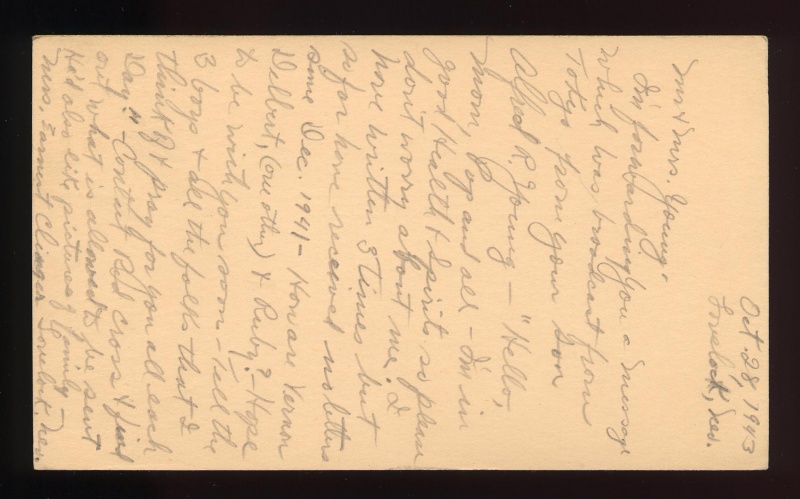 Oct. 28, 1943
Lovelock, Nev.
Mr & Mrs. Young,
I'm forwarding you a message
which was broadcast from
Tokyo from your son
Alfred R. Young — "Hello,
Mom, Pop and all – I'm in
good Health & Spirits so please
don't worry about me. I
have written 3 times but
so far have received no letters
since Dec. 1941 – How are Vernon
Delbert, (one other) & Ruby? – Hope
to be with you soon – Tell the
3 boys & all the folks that I
think of & pray for you all each
Day." – Contact Red Cross & find
out what is allowed to be sent
He'd also like pictures of family –
Mrs. Clinger Lovelock, Nev.